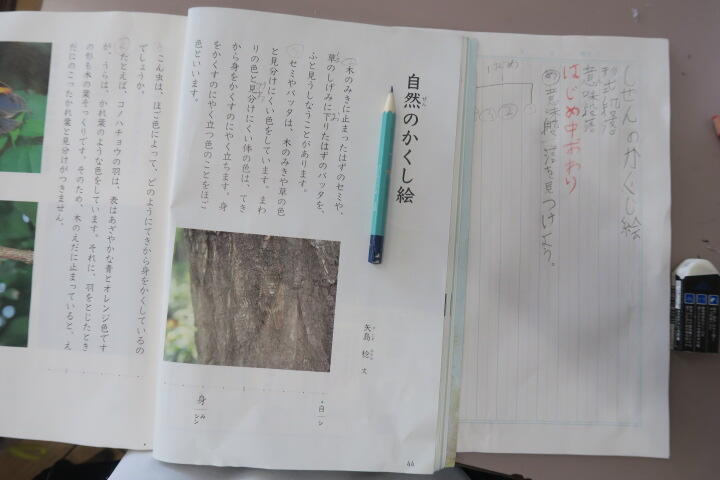 しぜんのかくし絵
形式段落
意味段落
はじめ中おわり
め意味段落を見つけよう。
はじめ
①②
自然のかくし絵
ぜん
矢島 稔 文
やじま みのる
①木のみきに止まったはずのセミや、
草のしげみに下りたはずのバッタを、
ふと見うしなうことがあります。
②セミやバッタは、木のみきや草の色
と見分けにくい色をしています。まわ
りの色と見分けにくい体の色は、てき
から身をかくすのにやく立ちます。身
をかくすのにやく立つ色のことをほご
色といいます。
自 シ
身 み シン
44
こん虫は、ほご色によって、どのようにてきから身をかくしているの
でしょうか。
たとえば、コノハチョウの羽は、表はあざやかな青とオレンジ色です
が、うらは、かれ葉のような色をしています。それに、羽をとじたとき
の形も木の葉そっくりです。そのため、木のえだに止まっていると、え
だにのこったかれ葉と見分けがつきません。